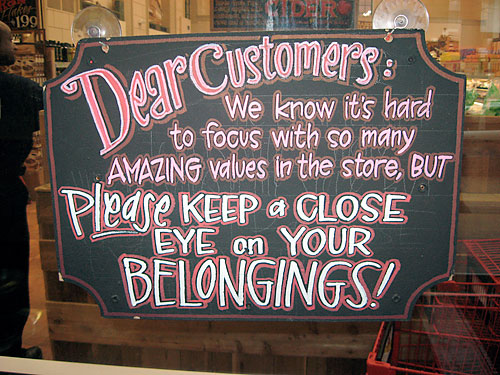 CIDER
199
Dear Customers:
We know it's hard
to focus with so many
AMAZING values in the store, BUT
Please KEEP a CLOSE
EYE on YOUR
BELONGINGS!